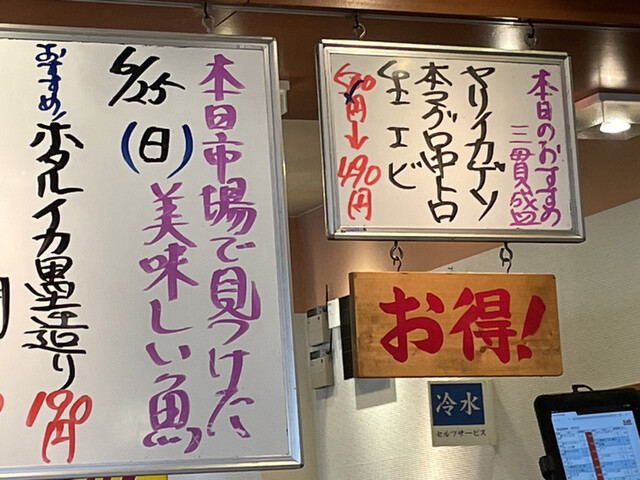 本日市場で見つけた
美味しい魚
6/25
(日)
おすすめ!
ホタルイカ墨造り
190円
本日のおすすめ
三貫盛
ヤリイカゲソ
本マグロ中トロ
生エビ
円→490円
お得!
冷水
セルフサービス